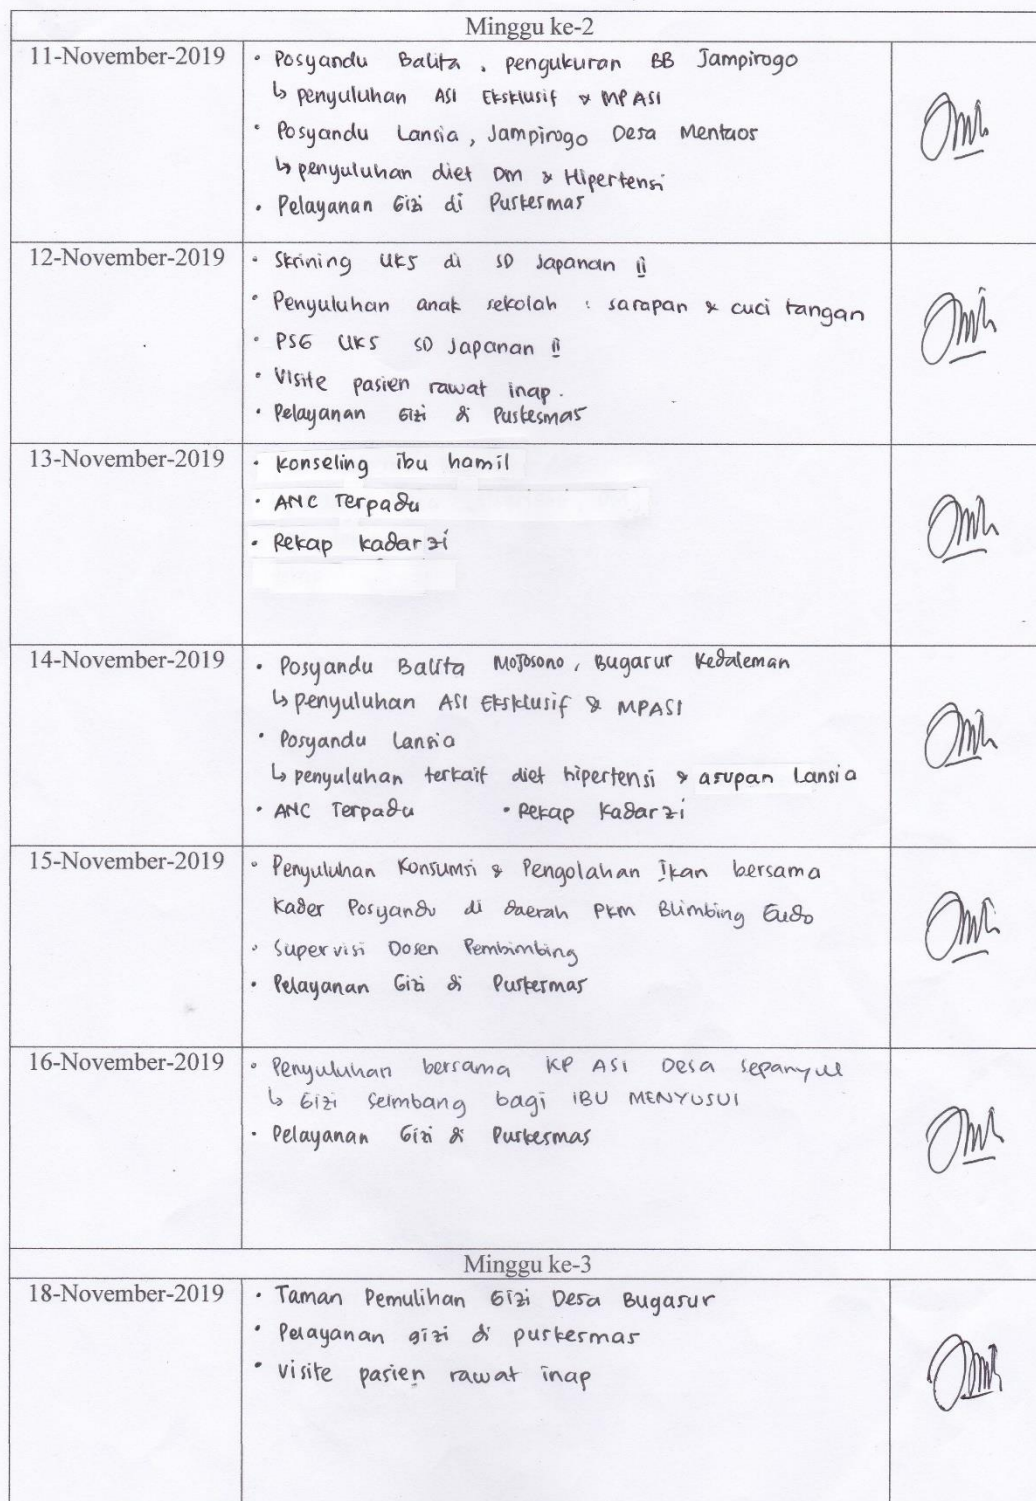 Minggu ke-2
11-November-2019
• Posyandu Balita, pengukuran BB Jampirogo
↳ penyuluhan ASI Eksklusif & MPASI
• Posyandu Lansia, Jampirogo Desa Mentaos
↳ penyuluhan diet DM & Hipertensi
• Pelayanan Gizi di Puskesmas
12-November-2019
• Skrining UKS di SD Japanan II
• Penyuluhan anak sekolah : sarapan & cuci tangan
• PSG UKS SD Japanan II
• Visite pasien rawat inap.
• Pelayanan Gizi di Puskesmas
13-November-2019
• Konseling ibu hamil
• ANC Terpadu
• Rekap kadarzi
14-November-2019
• Posyandu Balita Mojosono, Bugasur Kedaleman
↳ penyuluhan ASI Eksklusif & MPASI
• Posyandu Lansia
↳ penyuluhan terkait diet hipertensi & asupan Lansia
• ANC Terpadu • Rekap Kadarzi
15-November-2019
• Penyuluhan Konsumsi & Pengolahan Ikan bersama
Kader Posyandu di daerah PKM Blimbing Gudo
• Supervisi Dosen Pembimbing
• Pelayanan Gizi di Puskesmas
16-November-2019
• Penyuluhan bersama KP ASI Desa Sepanyul
↳ Gizi Seimbang bagi IBU MENYUSUI
• Pelayanan Gizi di Puskesmas
Minggu ke-3
18-November-2019
• Taman Pemulihan Gizi Desa Bugasur
• Pelayanan gizi di puskesmas
• visite pasien rawat inap